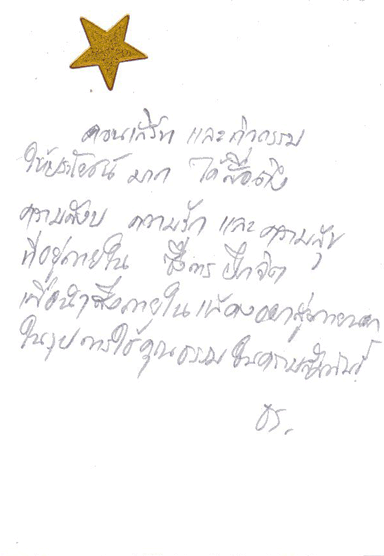 คอนเสิร์ท และกิจกรรม
ให้ประโยชน์ มาก ได้สื่อถึง
ความสงบ ความรัก และความสุข
ที่อยู่ภายใน ซึ่งการฝึกจิต
เพื่อนำสิ่งภายในแสดงออกสู่ภายนอก
ในรูปการใช้คุณธรรมในความสัมพันธ์